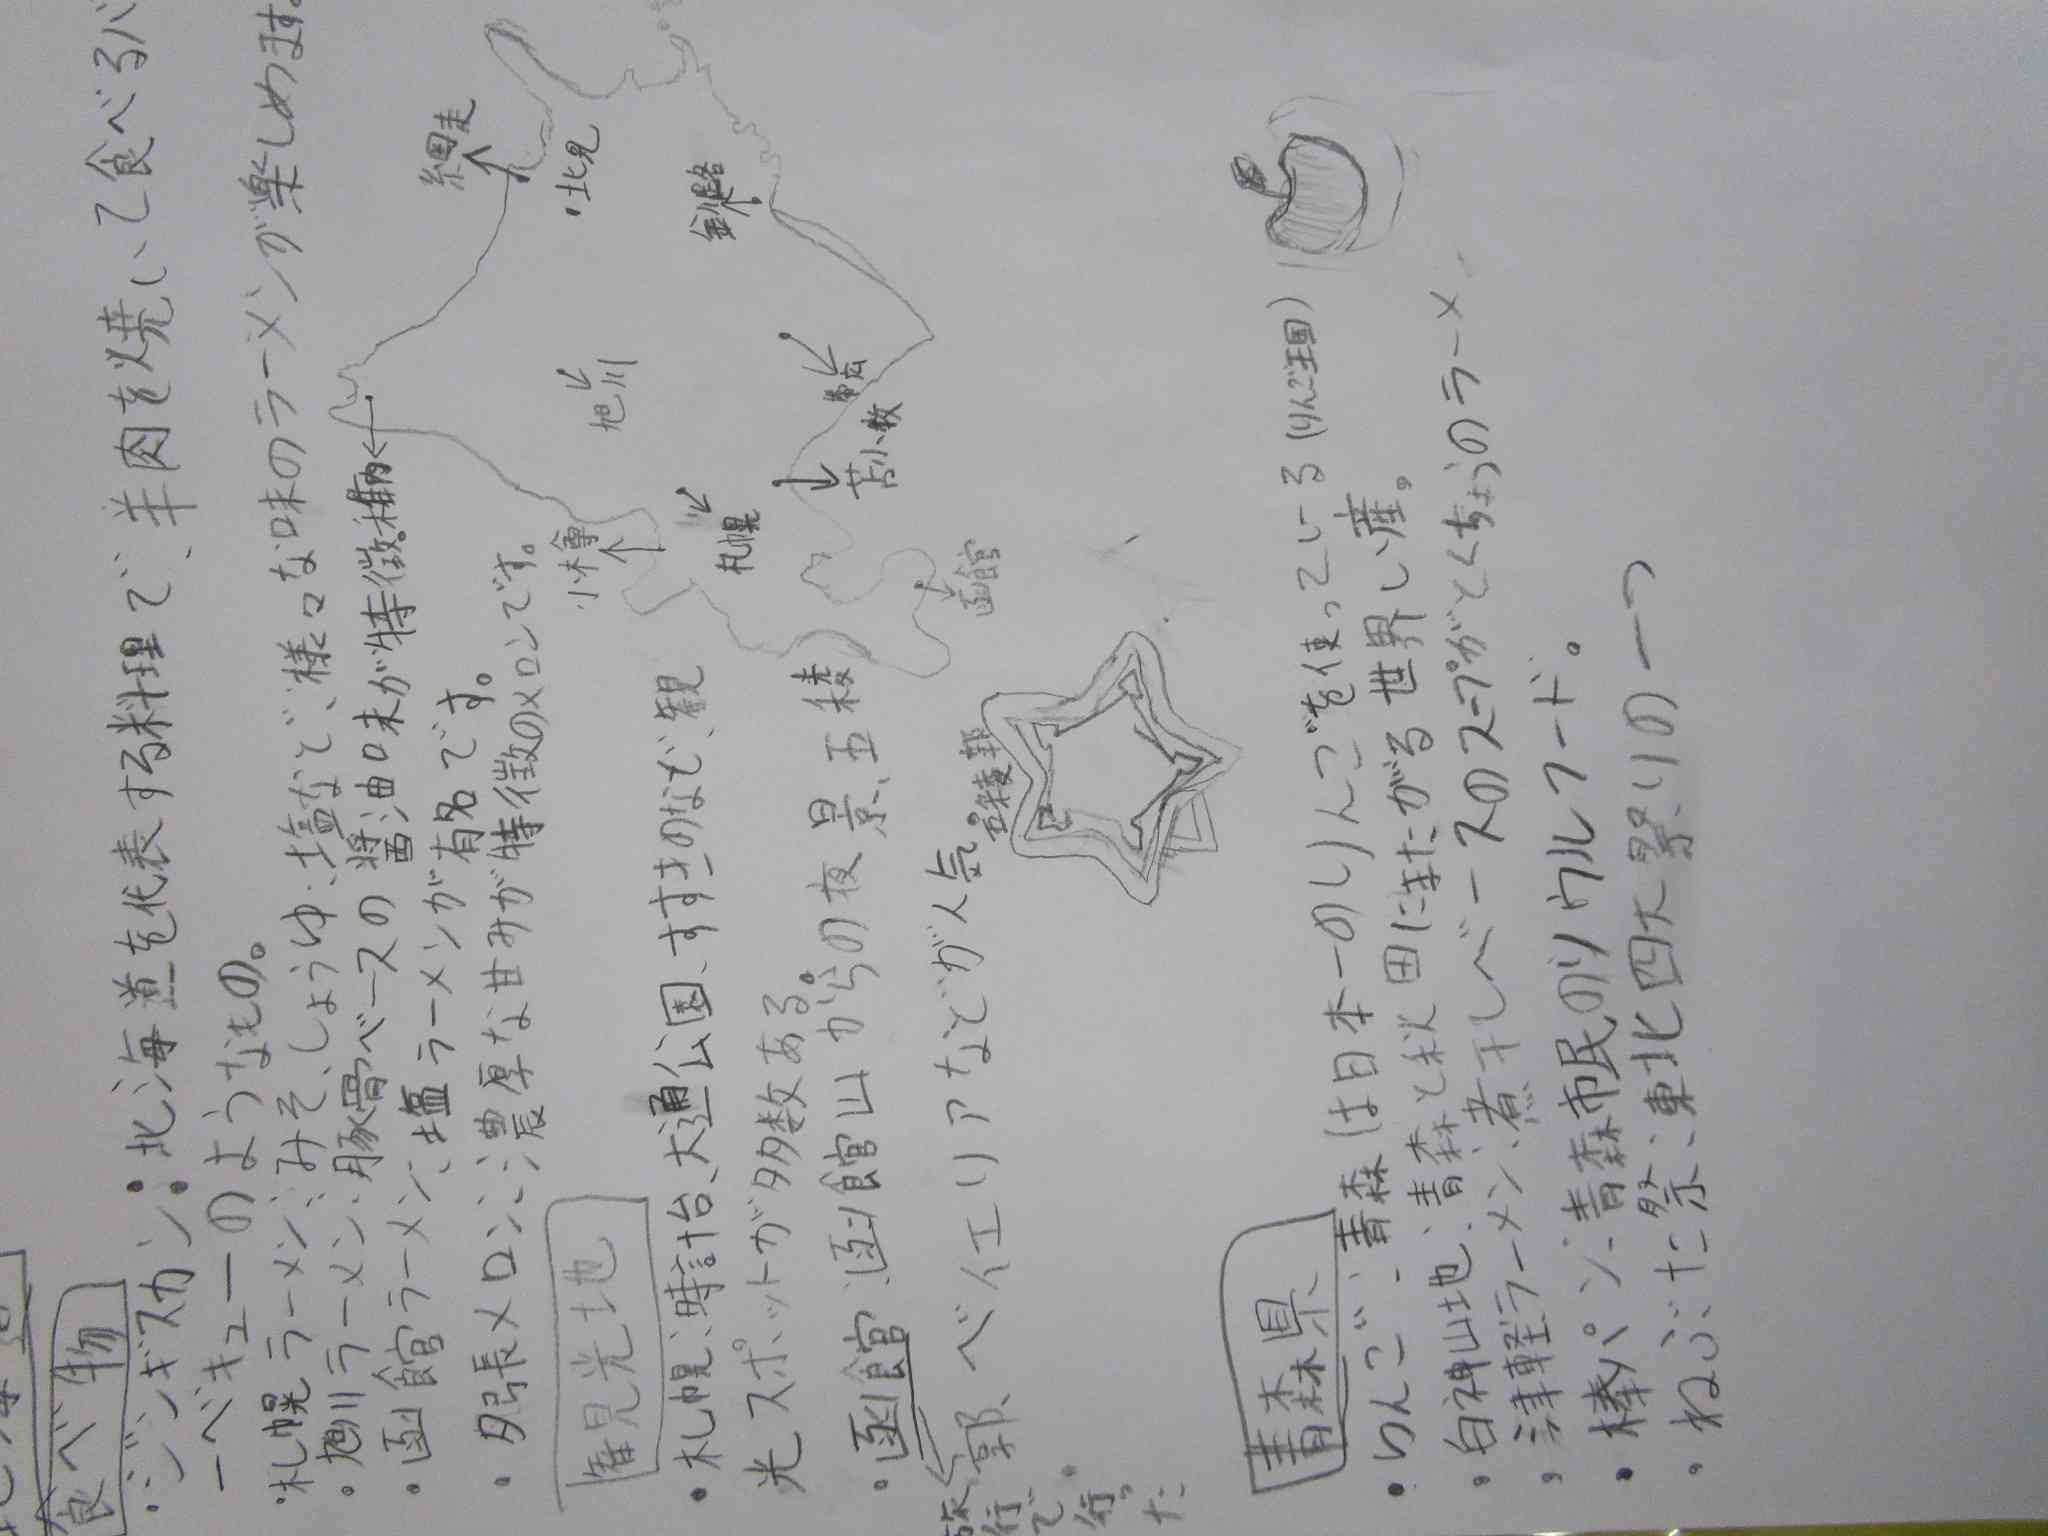 食べ物
・ジンギスカン:北海道を代表する料理で、羊肉を焼いて食べるバ
ーベキューのようなもの。
・札幌ラーメン:みそ、しょうゆ、塩などで、様々な味のラーメンが楽しめます。
・旭川ラーメン:豚骨ベースの醤油味が特徴。
・函館ラーメン:塩ラーメンが有名です。
・夕張メロン:濃厚な甘みが特徴のメロンです。
稚内
網走
・北見
釧路
旭川
帯広
苫小牧
小樽
札幌
函館
観光地
・札幌:時計台、大通公園、すすきのなど、観
光スポットが多数ある。
・函館:函館山からの夜景、五稜
郭、ベイエリアなどが人気。
旅行で行った
五稜郭
青森県
・りんご:青森は日本一のりんごを使っている(りんご王国)
・白神山地:青森と秋田にまたがる世界い産。
・津軽ラーメン:煮干しベースのスープがとくちょうのラーメ
・棒パン:青森市民のソウルフード。
・ねぶた祭:東北四大祭りの一つ